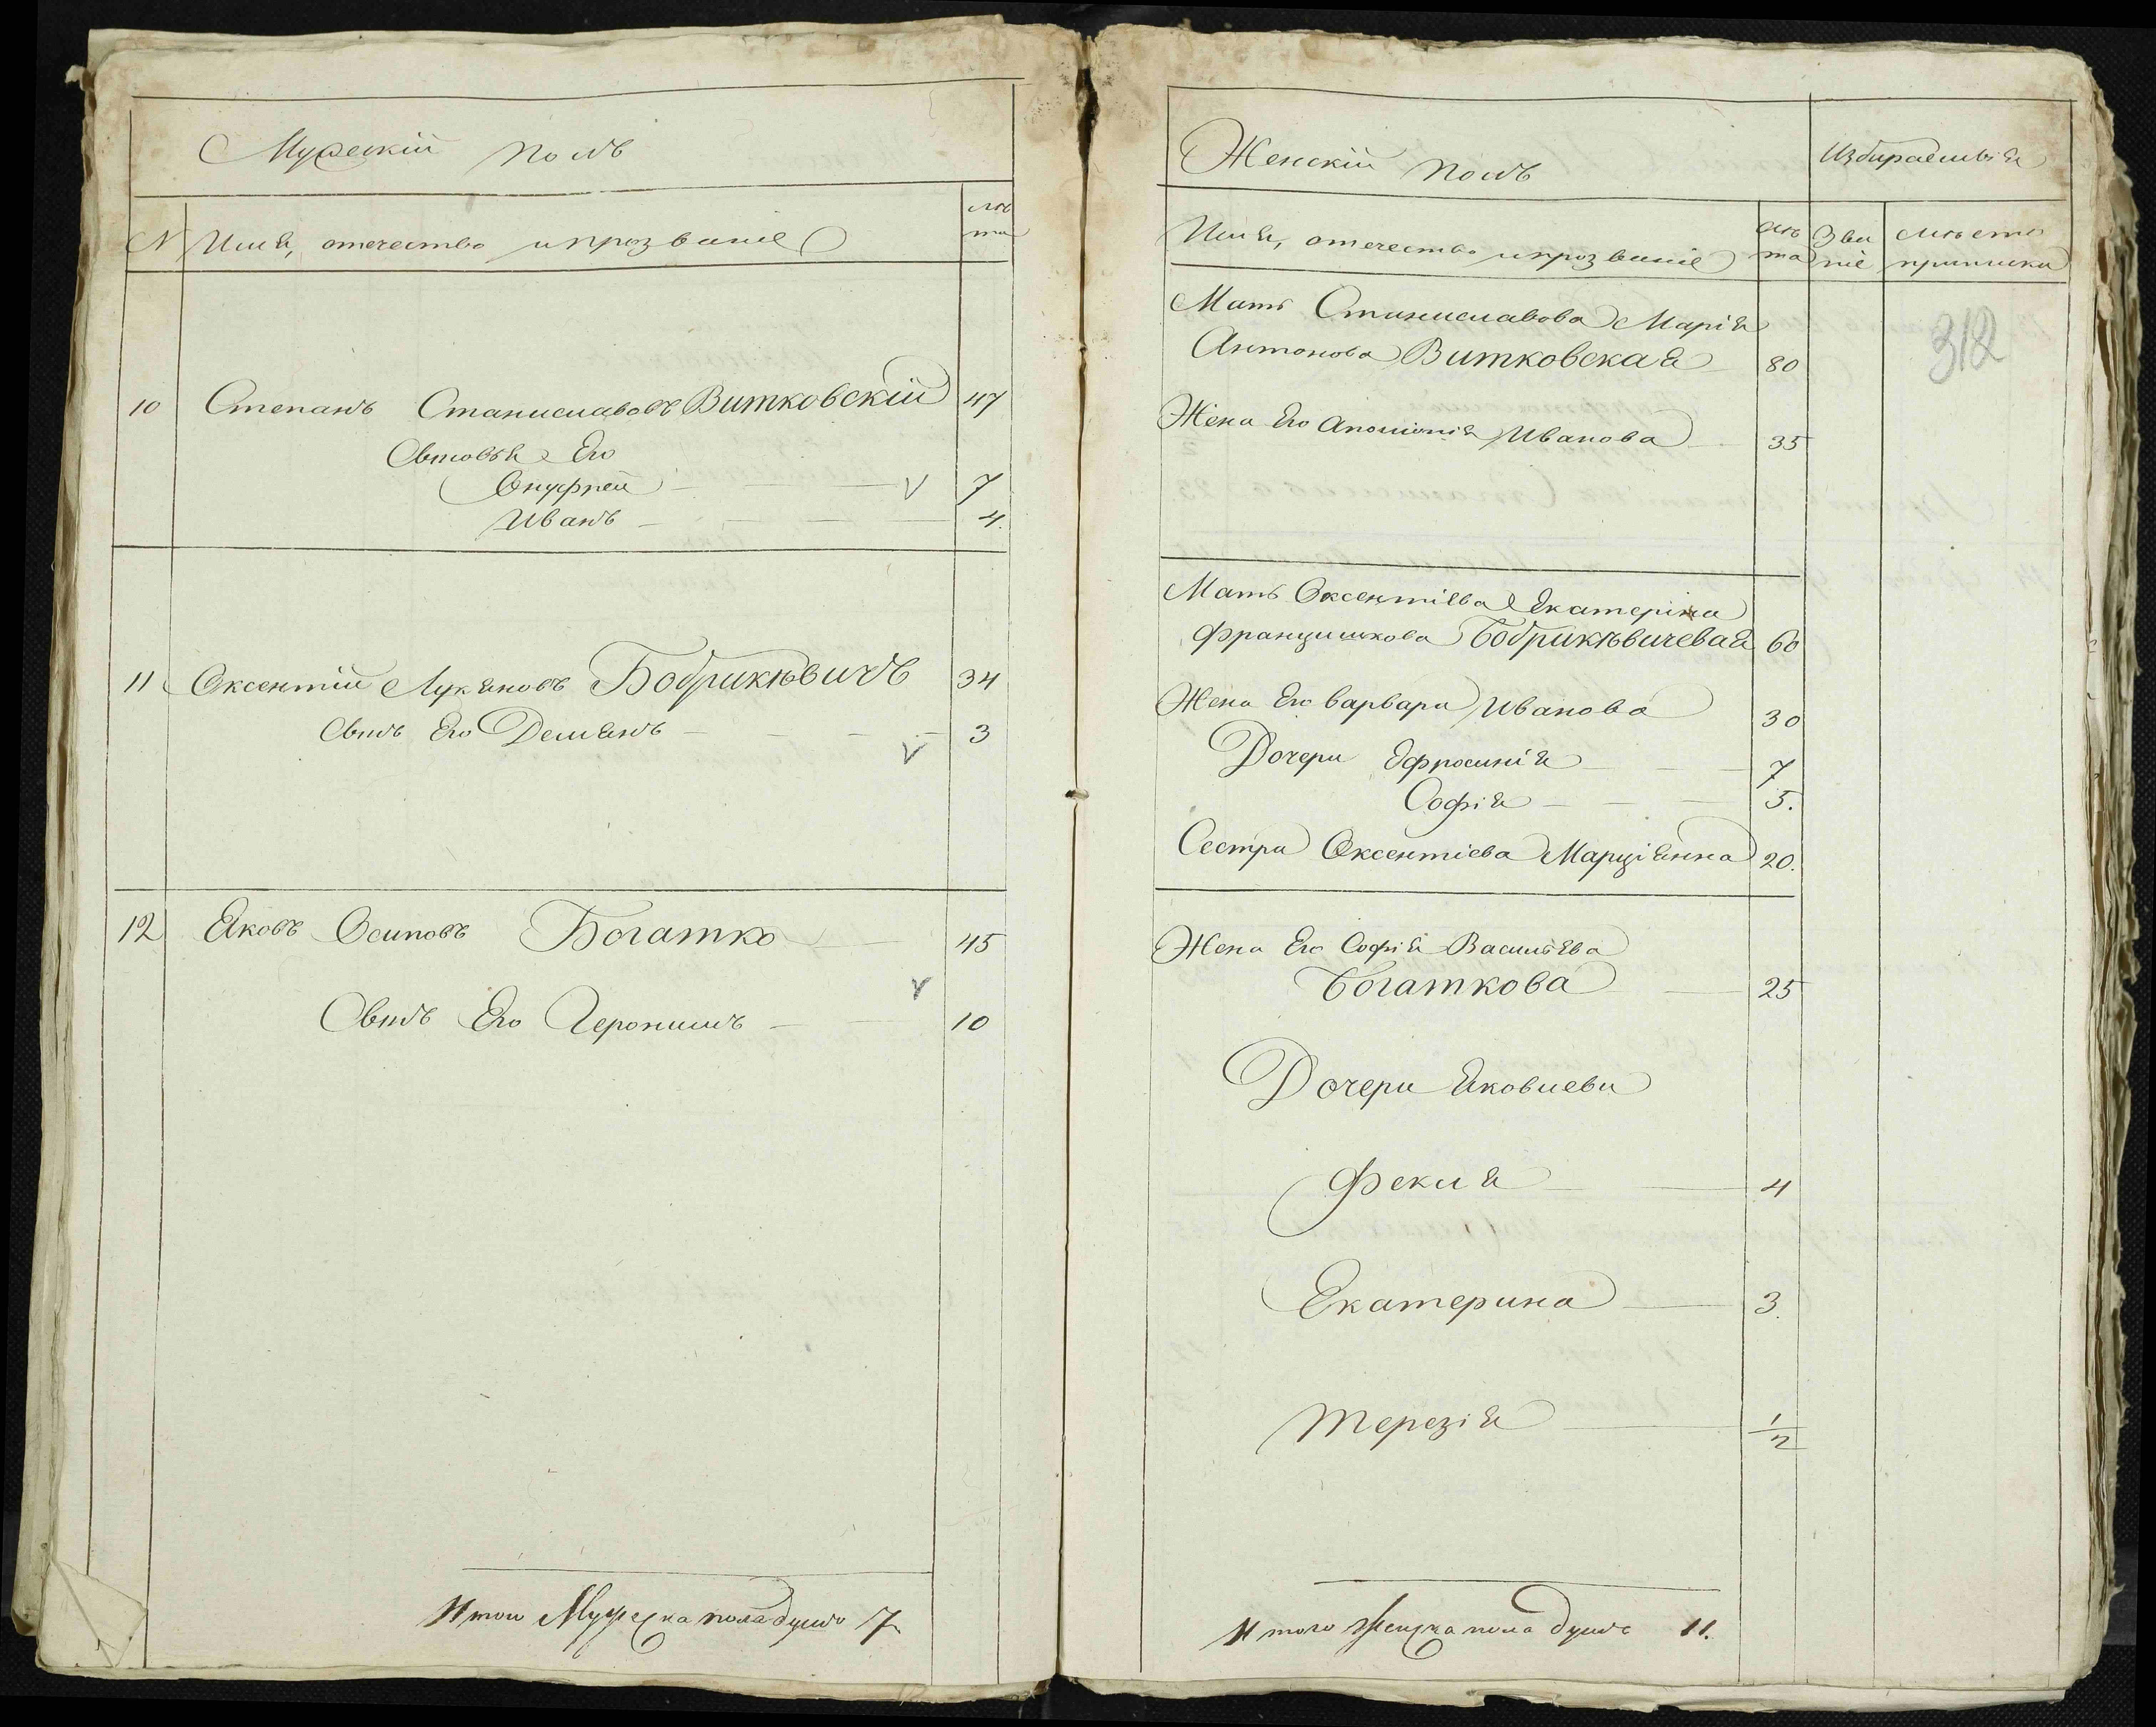 Мужескій полъ
№ Имя, отечество и прозваніе лѣ
та
10 Степанъ Станиславовъ Витковскій 47
Сыновья Его
Онуфрей — — — V 7
Иванъ — — — — 4.
11 Оксентій Лукяновъ Бобрикѣвичъ 34
Сынъ Его Демянъ — — — — 3
V
12 Яковъ Осиповъ Богатко — 45
V
Сынъ Его Геронимъ — — 10
Итого Мужеска пола душъ 7
Женскій полъ
Избираемыя
Имя, отечество и прозваніе лѣ
та
Зва
ніе
мѣсто
приписки
312
Мать Станиславова Марія
Антонова Витковская 80
Жена Его Аполонія Иванова 35
Мать Оксентіева Екатерина
Францишкова Бобрикѣвичевая 60
Жена Его Варвара Иванова 30
Дочери Ефросинія — — 7
Софія — — — 5.
Сестра Оксентіева Марціянна 20.
Жена Его Софія Васильева
Богаткова — 25
Дочери Яковлевы
Фекля — — 4
Екатерина — 3.
Терезія — 1/2
Итого Женска пола душъ 11.